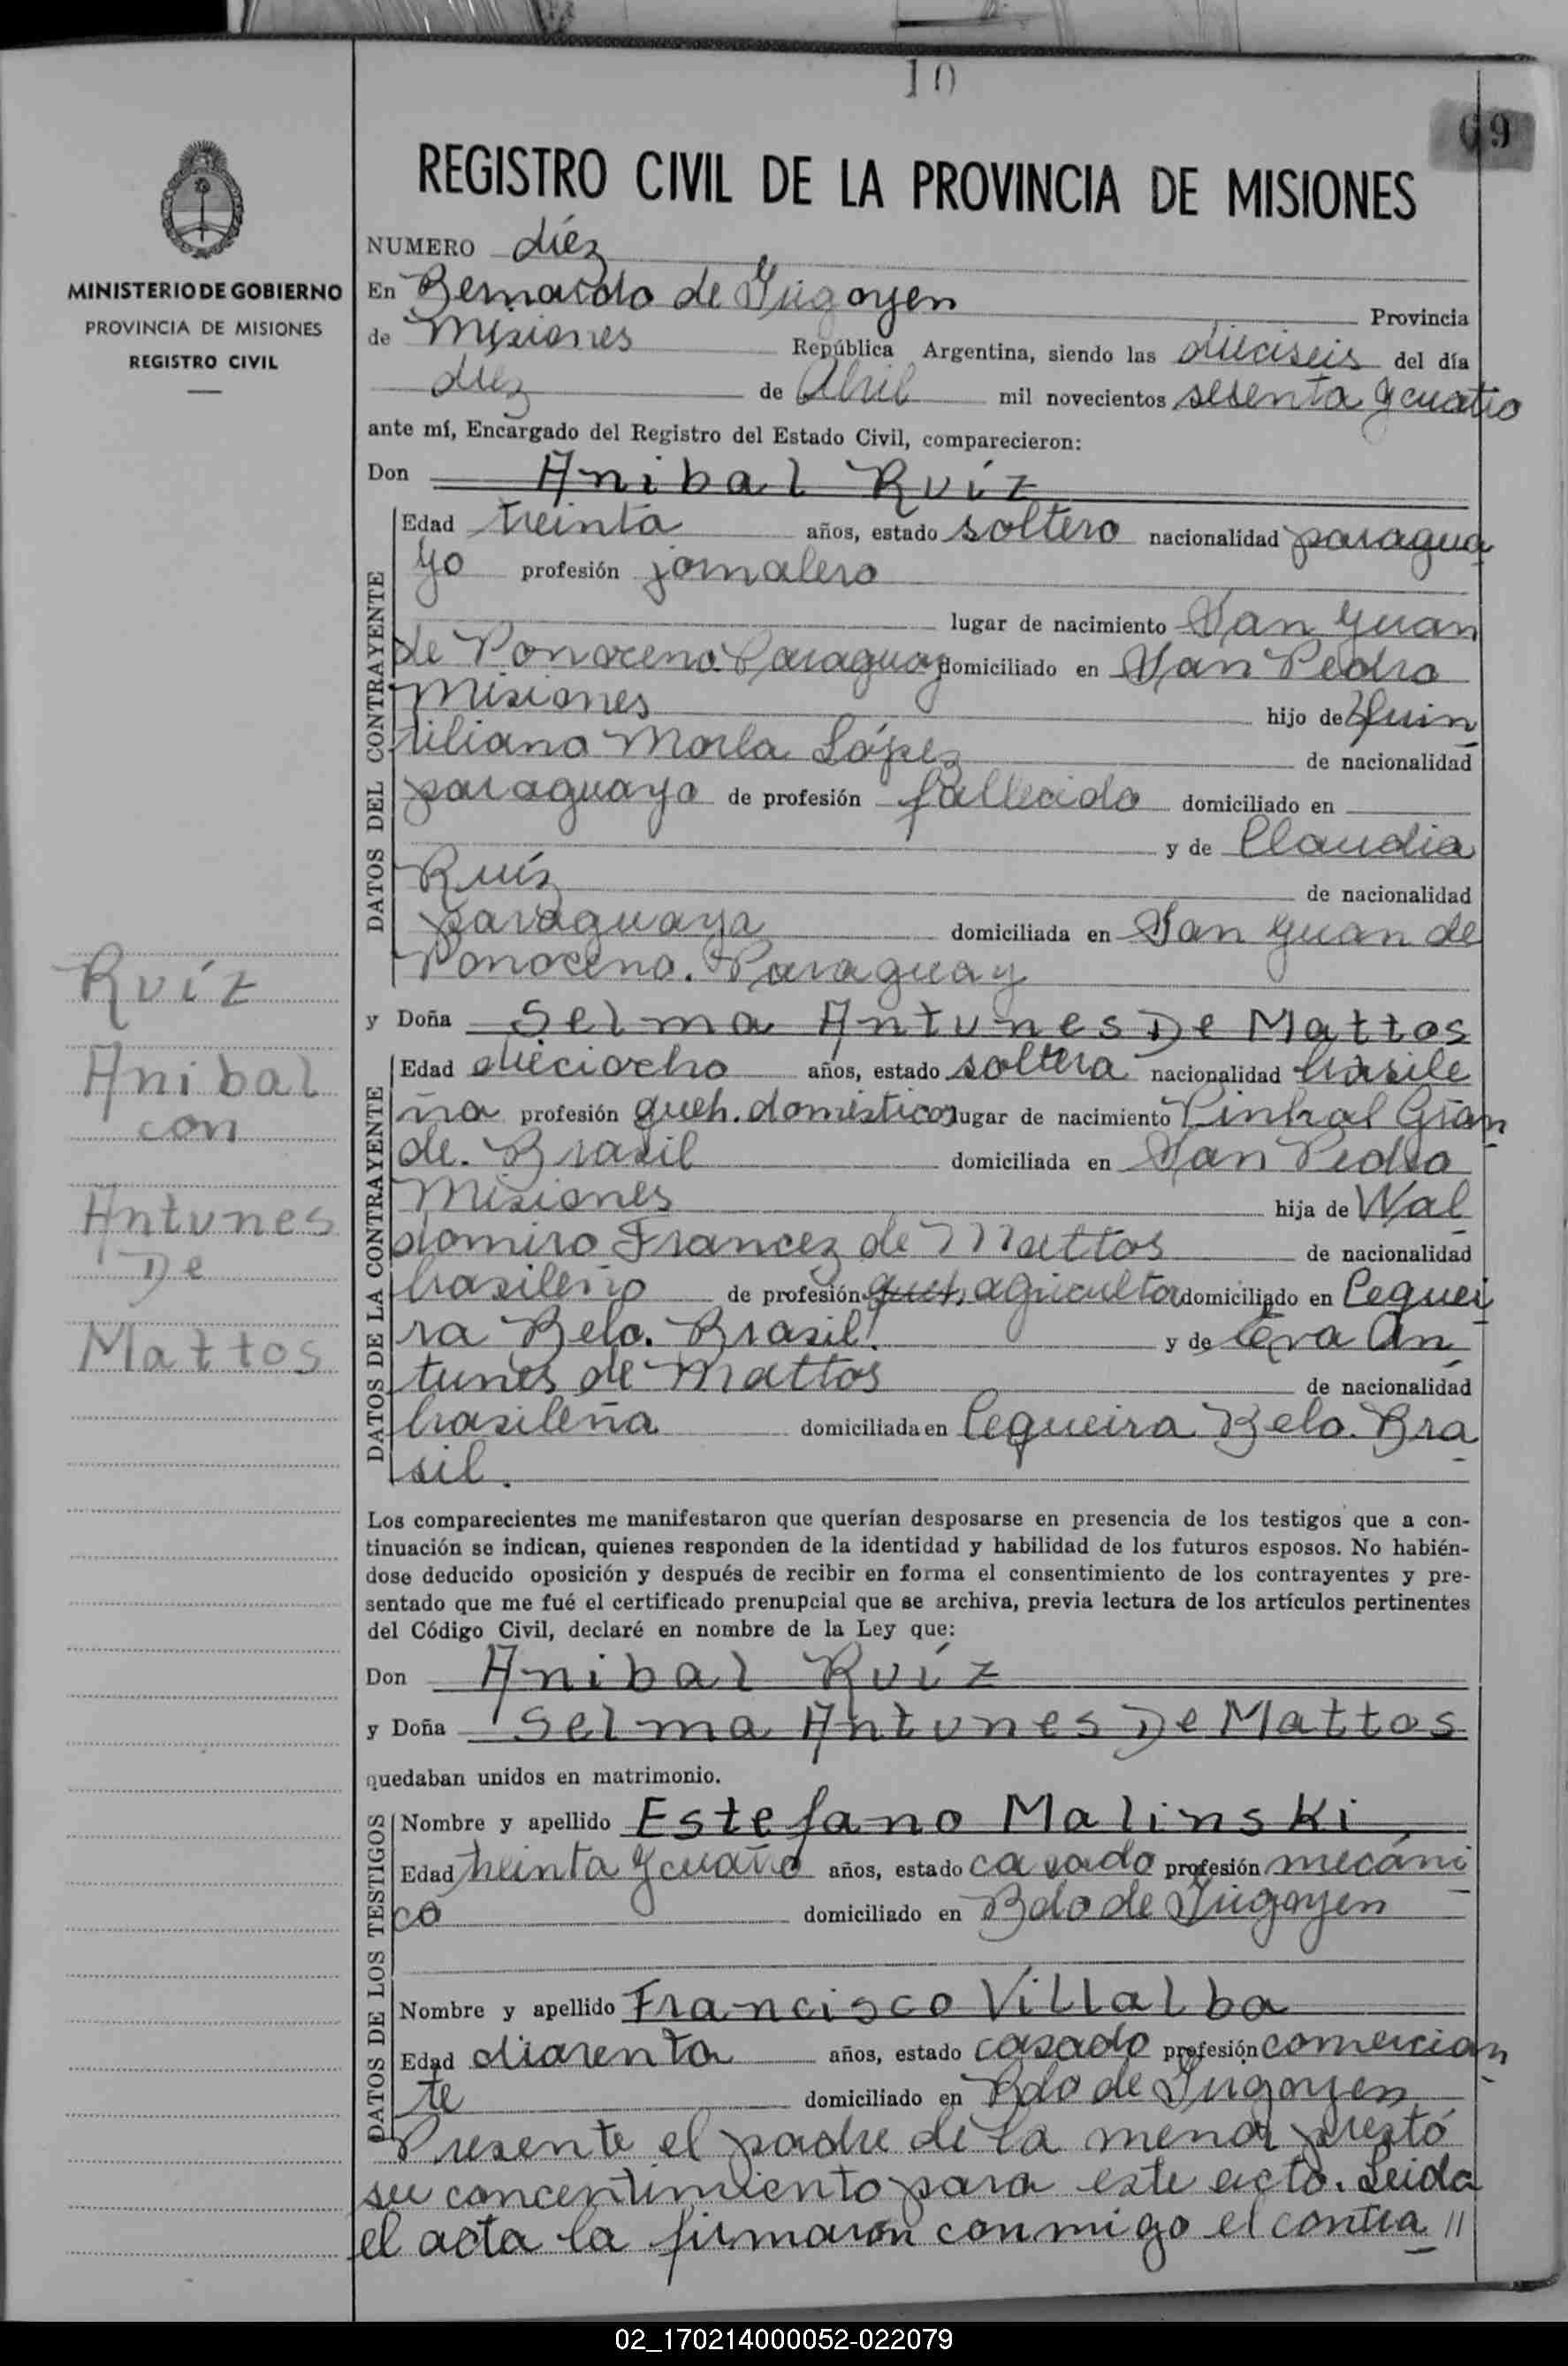 10
69
REGISTRO CIVIL DE LA PROVINCIA DE MISIONES
MINISTERIO DE GOBIERNO
PROVINCIA DE MISIONES
REGISTRO CIVIL
Ruíz
Anibal
con
Antunes
De
Mattos
NUMERO diéz
En Bernardo de Yrigoyen Provincia
de Misiones República Argentina, siendo las dieciseis del día
diez de Abril mil novecientos sesenta y cuatro
ante mí, Encargado del Registro del Estado Civil, comparecieron:
Don Anibal Ruíz
DATOS DEL CONTRAYENTE
Edad treinta años, estado soltero nacionalidad paragua
yo profesión jornalero
lugar de nacimiento San Juan
de Ponoceno. Paraguay domiciliado en San Pedro
Misiones hijo de Quin
tiliano Morla López de nacionalidad
paraguayo de profesión fallecido domiciliado en
y de Claudia
Ruíz de nacionalidad
paraguaya domiciliada en San Juan de
Ponoceno. Paraguay
y Doña Selma Antunes De Mattos
DATOS DE LA CONTRAYENTE
Edad dieciocho años, estado soltera nacionalidad brasile
ña profesión queh. domésticos lugar de nacimiento Pinhal Gran
de. Brasil domiciliada en San Pedro
Misiones hija de Wal
domiro Francez de Mattos de nacionalidad
brasileño de profesión queh. agricultor domiciliado en Pequei
ra Belo. Brasil. y de Eva An
tunes de Mattos de nacionalidad
brasileña domiciliada en Pequeira Belo. Bra
sil.
Los comparecientes me manifestaron que querían desposarse en presencia de los testigos que a con-
tinuación se indican, quienes responden de la identidad y habilidad de los futuros esposos. No habién-
dose deducido oposición y después de recibir en forma el consentimiento de los contrayentes y pre-
sentado que me fué el certificado prenupcial que se archiva, previa lectura de los artículos pertinentes
del Código Civil, declaré en nombre de la Ley que:
Don Anibal Ruíz
y Doña Selma Antunes De Mattos
quedaban unidos en matrimonio.
DATOS DE LOS TESTIGOS
Nombre y apellido Estefano Malinski
Edad treinta y cuatro años, estado casado profesión mecáni
co domiciliado en Bdo de Yrigoyen
Nombre y apellido Francisco Villalba
Edad cuarenta años, estado casado profesión comercian
te domiciliado en Bdo de Yrigoyen
Presente el padre de la menor prestó
su concentimiento para este acto. Leida
el acta la firmaron conmigo el contra //
02_170214000052-022079